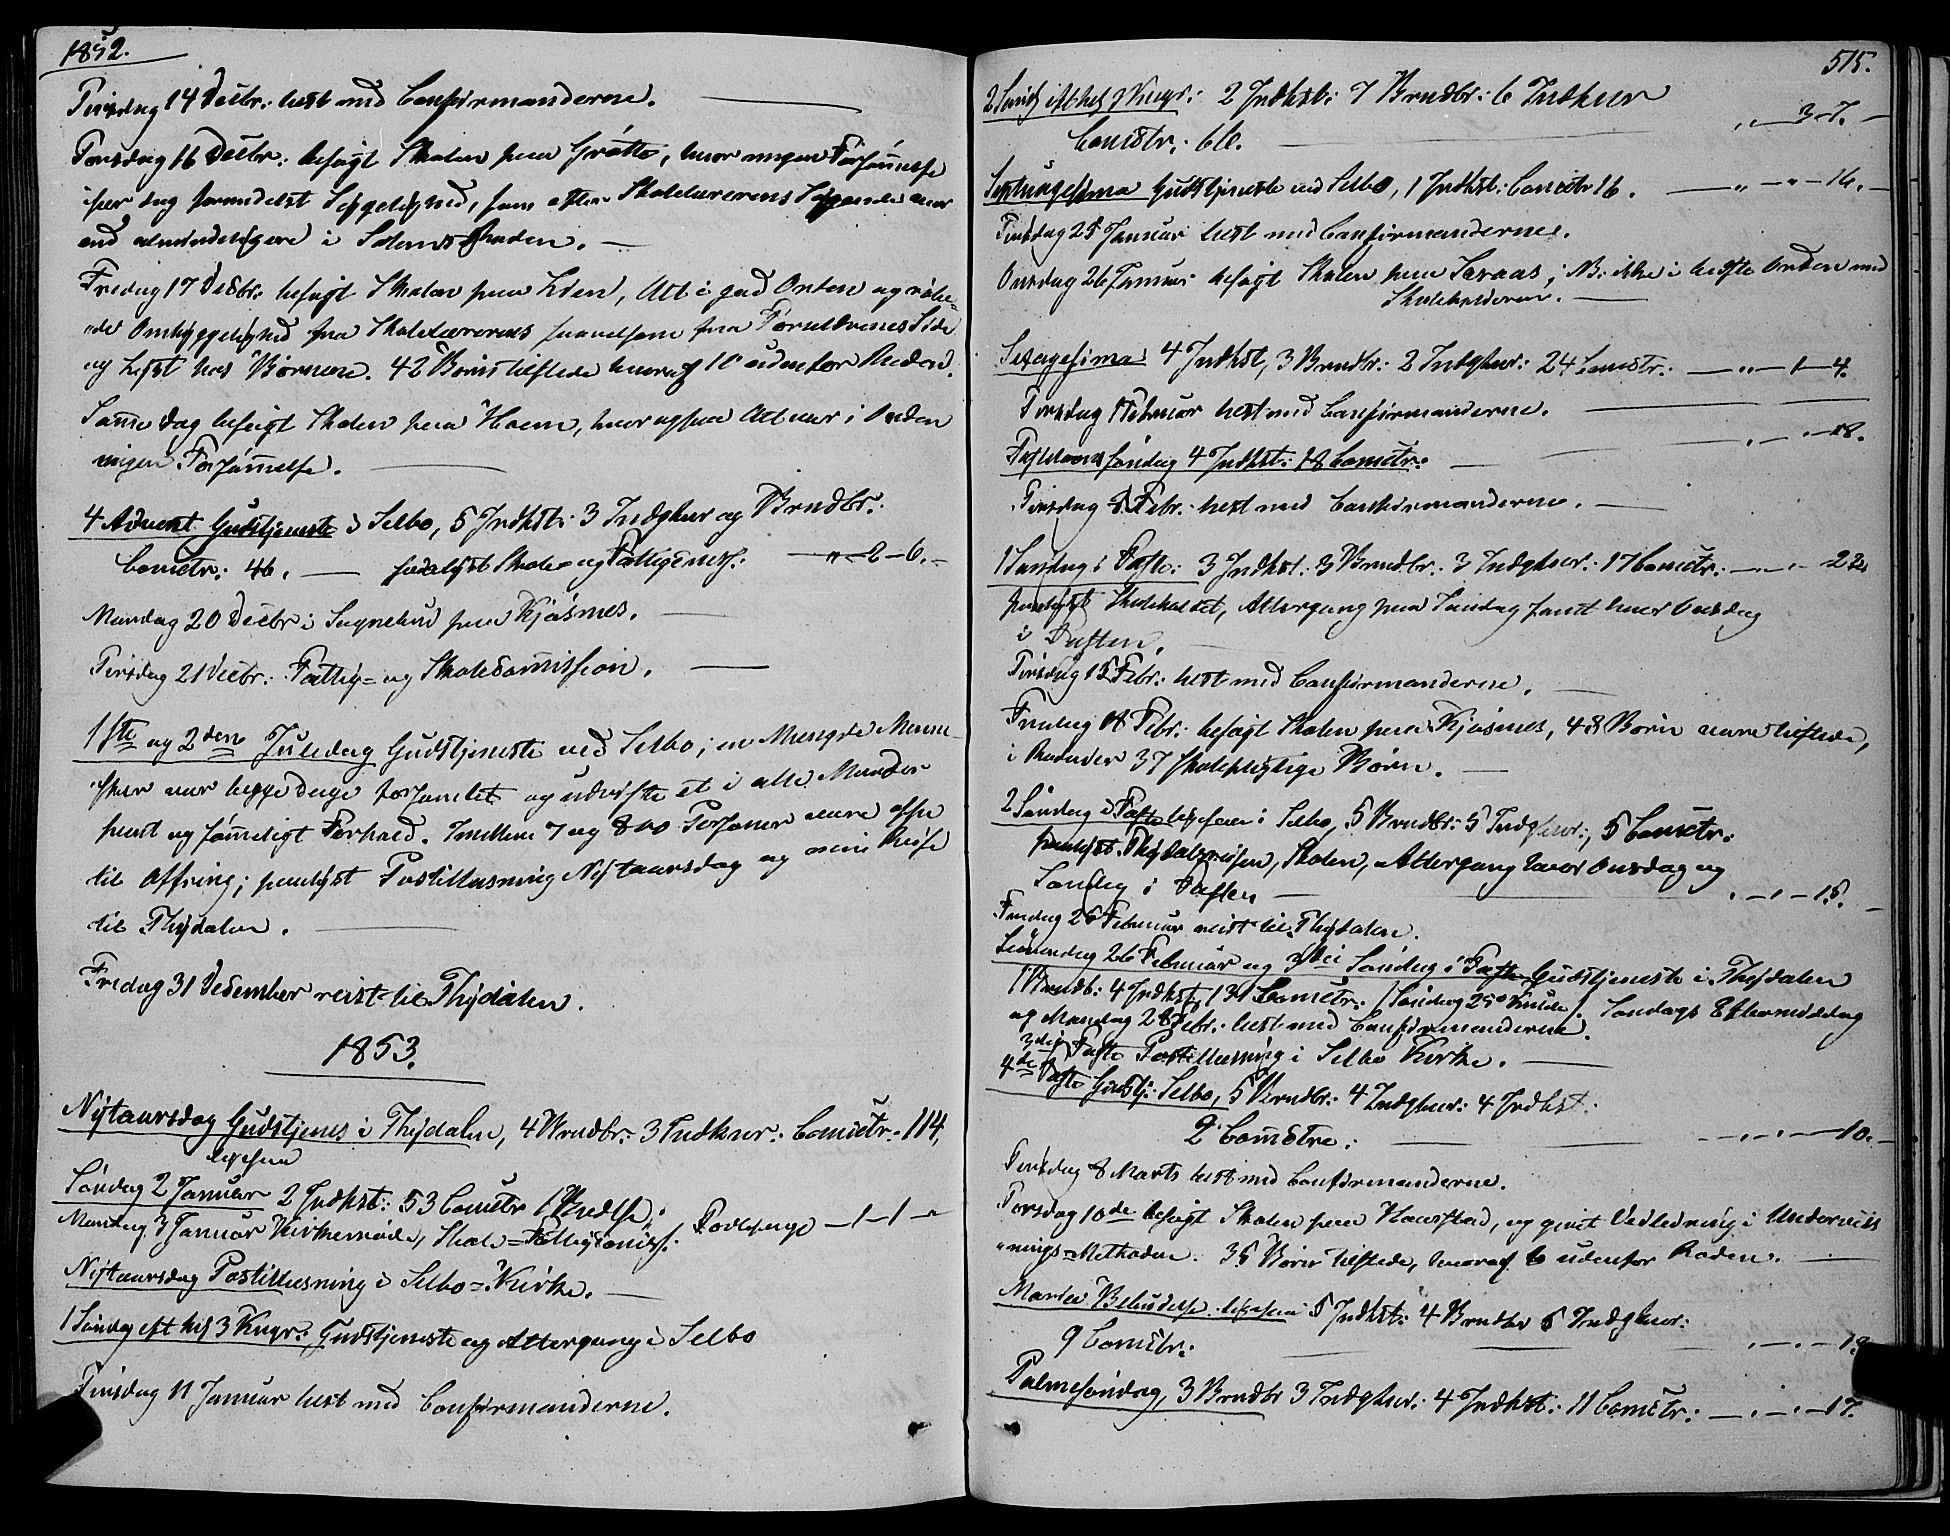 1852.
Tirsdag 14 Decbr: læst med Confirmanderne.
Torsdag 16 Decbr: besøgt Skolen paa Grøtte, hvor megen Forsømmelse
især dag formedelst Syggelighed, som efter Skolelærerens Sigende var
end almindeligere i Skolen.
Fredag 17 Decbr: besøgt Skolen paa Lien, Alt i god Orden og
Omhyggelighed fra Skolelærerens saavelsom fra Forældrenes Side
og Lyst hos Børnene. 42 Børn tilstede hvoraf 10 udenfor Roden.
Samme Dag besøgt Skolen paa Hoem, hvor ogsaa Alt var i Orden
ingen Forsømmelse.
4 Advent Gudstjeneste i Selbo, 5 Indkst: 3 Indghur og Brudbr:
Comctr: 46. Skole og Fattigcomss: „ 2 - 6.
Mandag 20 Decbr i Sognebud paa Kjøsnes.
Tirsdag 21 Decbr: Fattig= og Skolecommission.
1ste og 2den Juledag Gudstjeneste ved Selbo; en Mængde Menne-
sker var begge Dage forsamlet og udviste et i alle Maader
pent og sømmeligt Forhold. Imellem 7 og 800 Personer vare oppe
til Offring; paalyst Postillæsning Nytaarsdag og min Reise
til Thydalen.
Fredag 31 December reist til Thydalen.
1853.
Nytaarsdag Gudstjenes i Thydalen, 4 Brudbr: 3 Indkur: Comctr: 114,
ligesaa
Søndag 2 Januar 2 Indkst: 53 Comctr 1 Brudvi:
Mandag 3 Januar Kirkemøde, Skole= Fattigcomiss: Tavlepenge 1 - 1 - „
Nytaarsdag Postillæsning i Selbo=Kirke.
1 Søndag eft hel 3 Kngr: Gudstjeneste og Altergang i Selbo
Tirsdag 11 Januar læst med Confirmanderne.
515.
2 Sønd eft hel 3 Kngr: 2 Indkst: 7 Brudbr: 6 Indkur
Comctr: 60. „ 3 - 7.
Septuagesima Gudstjeneste ved Selbo, 1 Indkst: Comctr 16. „ - „ - 16.
Tirsdag 25 Januar læst med Confirmanderne.
Onsdag 26 Januar besøgt Skolen paa Saraas; NB: ikke i bedste Orden med
Skoleholderen.
Sexagesima 4 Indkst, 3 Brudbr: 2 Indghur: 24 Comctr: „ 1 - 4.
Tirsdag 1 Februar læst med Confirmanderne.
Fastelavns søndag 4 Indkst: 18 Comctr: „ - „ - 18.
Tirsdag 8 Febr: læst med Confirmanderne.
1 Søndag i Faste: 3 Indkst: 3 Brudbr: 3 Indghur: 17 Comctr: „ - „ - 22.
paalyst Skoleholdet, Altergang paa Søndag samt hver Onsdag
i Fasten.
Tirsdag 15 Febr: læst med Confirmanderne.
Fredag 18 Febr: besøgt Skolen paa Kjøsnes, 48 Børn vare tilstede,
i Roden er 37 skolepligtige Børn.
2 Søndag i Faste ligesaa i Selbo, 5 Brudbr: 5 Indghur:, 5 Comctr:
paalyst Thydalsreisen, Skolen, Altergang hver Onsdag og
Søndag i Fasten „ - „ - 15.
Fredag 25 Februar reist til Thydalen.
Løverdag 26 Februar og 3die Søndag i Faste Gudstjeneste i Thydalen
1 Brudb: 4 Indkst, 131 Comctr: Søndags Eftermiddag
og Mandag 28 Febr: læst med Confirmanderne.
3die Faste Postillæsning i Selbo Kirke.
4de Faste Gudstj: Selbo, 5 Brudbr: 4 Indghur: 4 Indkst:
2 Comctre: „ - „ - 10.
Tirsdag 8 Marts læst med Confirmanderne.
Torsdag 10de besøgt Skolen paa Havstad, og givet Veiledning i Underviis
nings=Methoden. 35 Børn tilstede, hvoraf 6 udenfor Roden.
Mariæ Bebudelse ligesaa 5 Indkst: 4 Brudbr 5 Indghur:
9 Comctr: „ - „ - 19
Palmesøndag, 3 Brudbr 3 Indghur: 4 Indkst: 11 Comctr: „ - „ - 17.